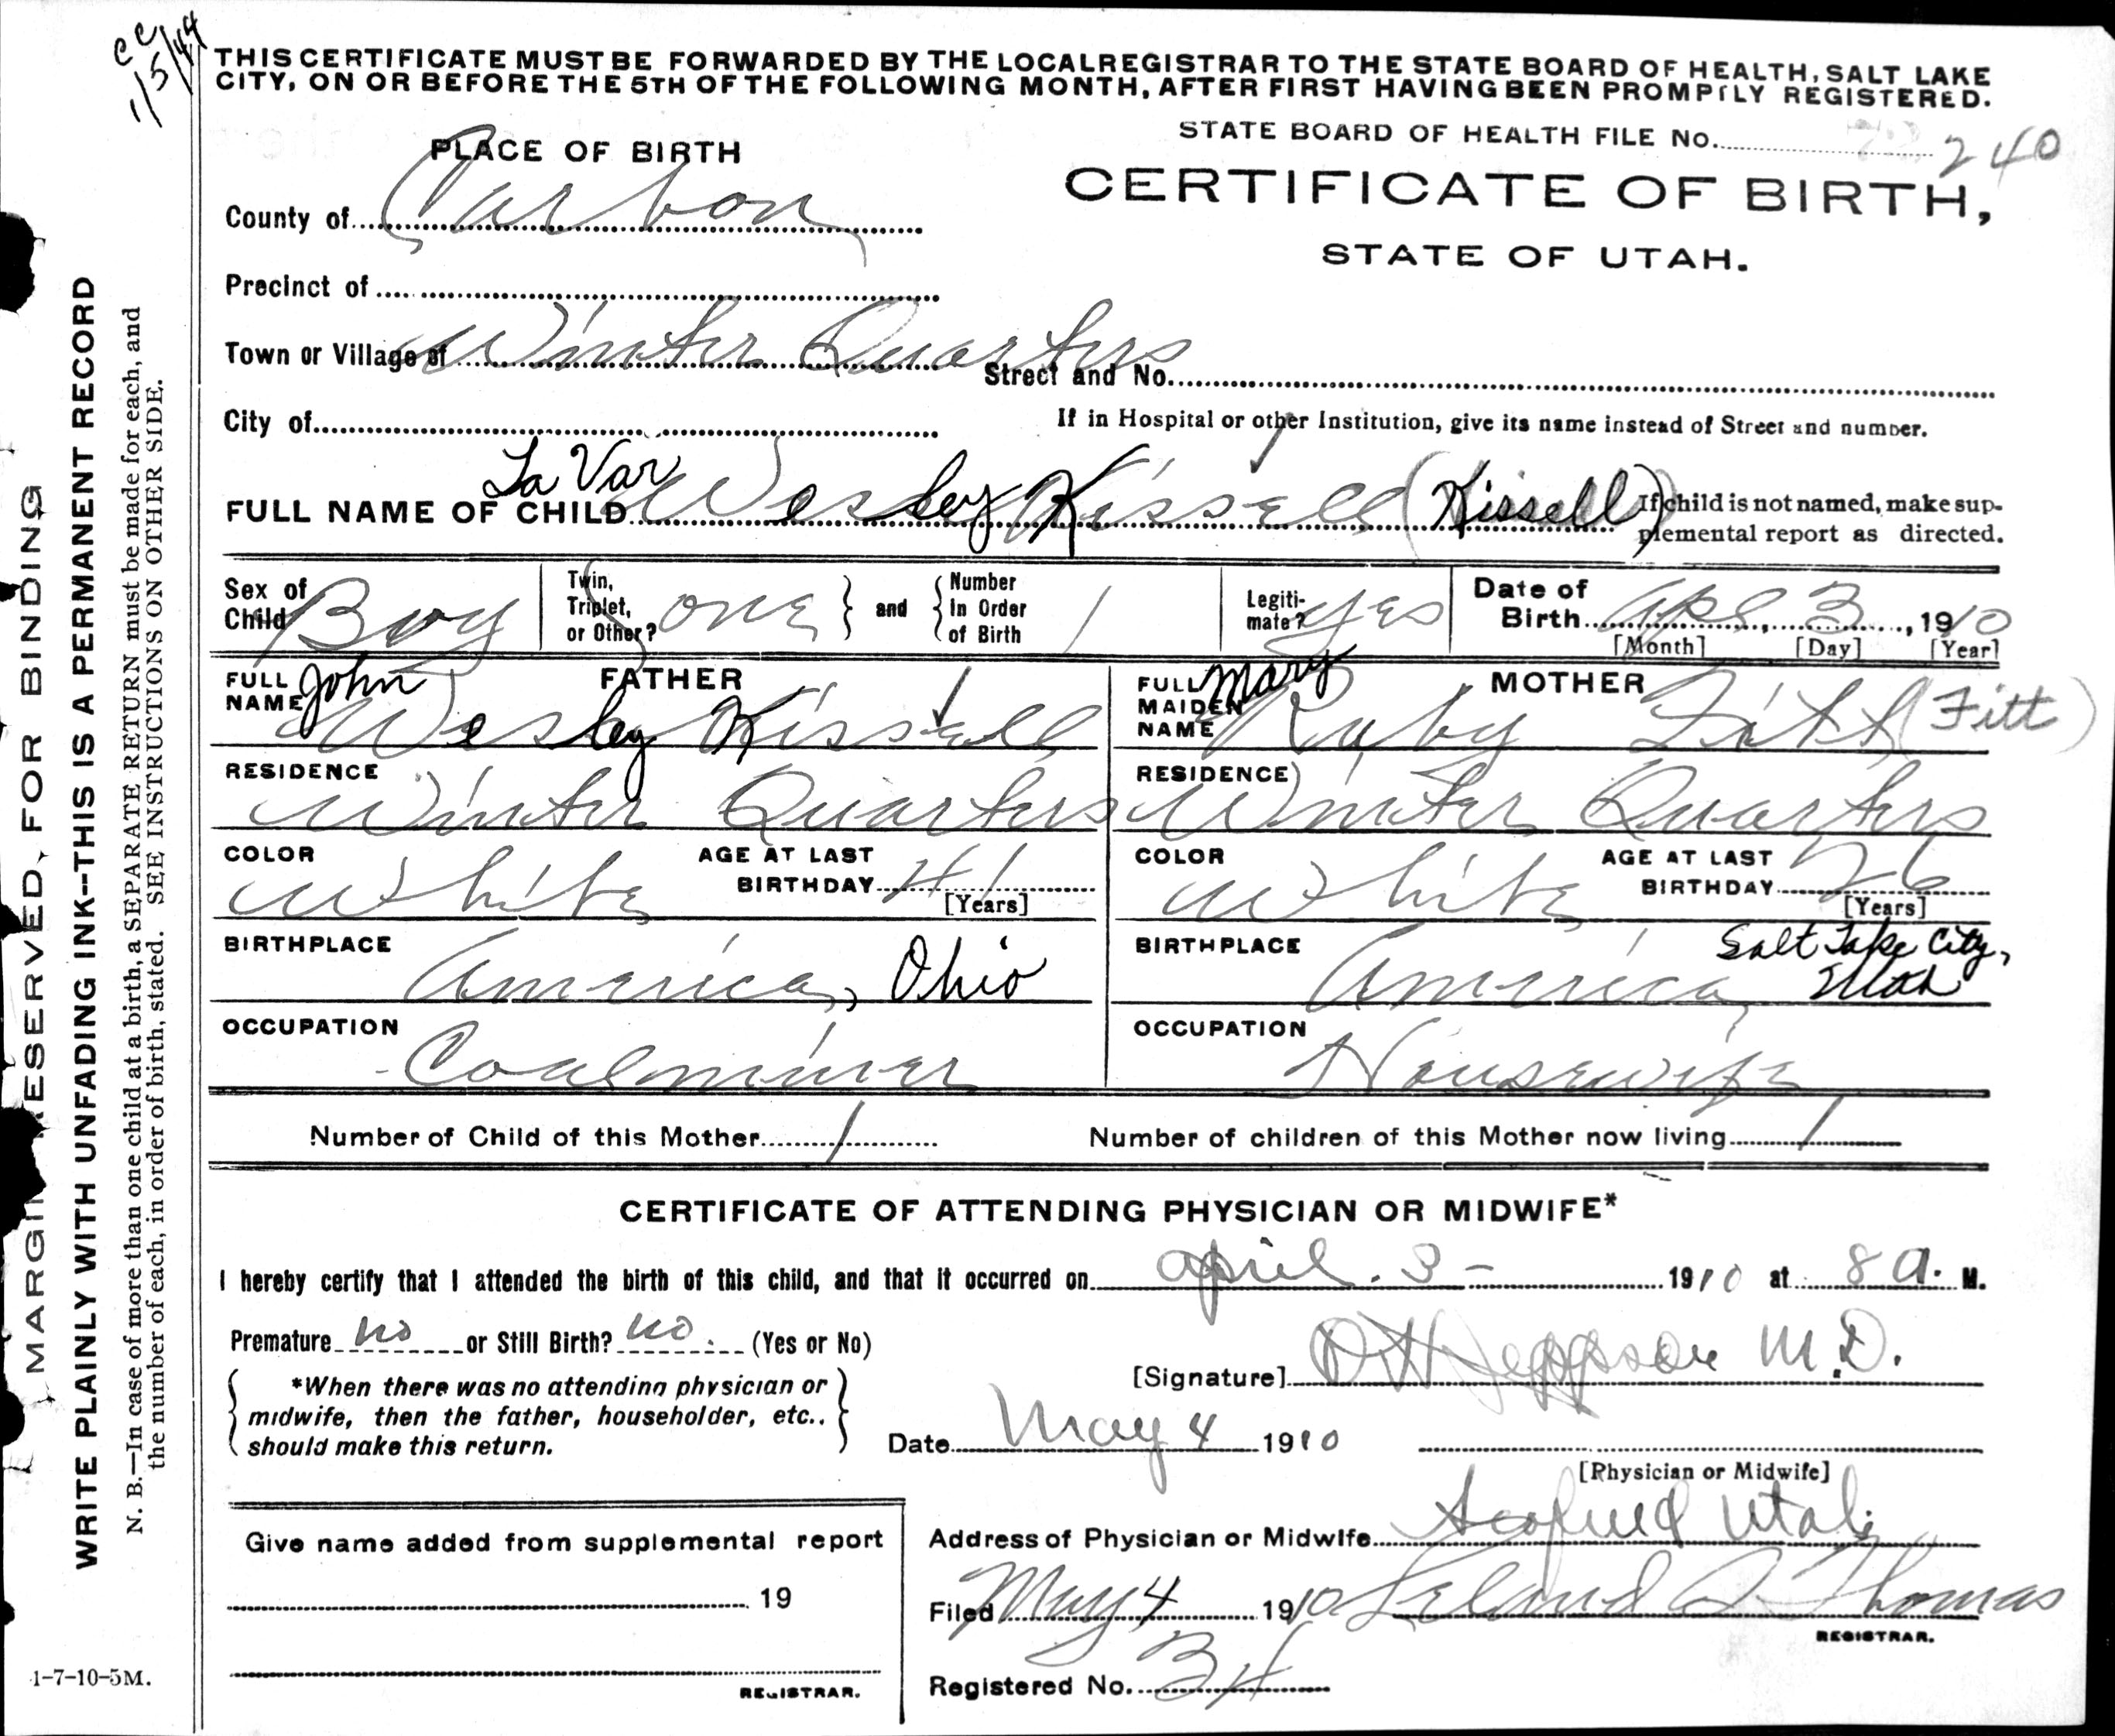 cc
1/5/44
THIS CERTIFICATE MUST BE FORWARDED BY THE LOCAL REGISTRAR TO THE STATE BOARD OF HEALTH, SALT LAKE
CITY, ON OR BEFORE THE 5TH OF THE FOLLOWING MONTH, AFTER FIRST HAVING BEEN PROMPTLY REGISTERED.
STATE BOARD OF HEALTH FILE No. 240
PLACE OF BIRTH
CERTIFICATE OF BIRTH,
STATE OF UTAH.
County of Carbon
Precinct of
Town or Village of Winter Quarters
Street and No.
City of
If in Hospital or other Institution, give its name instead of Street and number.
FULL NAME OF CHILD La Var Wesley Kissell (Kissell) If child is not named, make sup-
plemental report as directed.
Sex of Child Boy
Twin, Triplet, or Other? one and Number In Order of Birth 1
Legiti-mate? yes
Date of Birth Apr 3, 1910
[Month] [Day] [Year]
FATHER
FULL NAME John Wesley Kissell
MOTHER
FULL MAIDEN NAME Mary Ruby Fitt (Fitt)
RESIDENCE Winter Quarters
RESIDENCE Winter Quarters
COLOR White AGE AT LAST BIRTHDAY 41 [Years]
COLOR White AGE AT LAST BIRTHDAY 26 [Years]
BIRTHPLACE America, Ohio
BIRTHPLACE America, Salt Lake City, Utah
OCCUPATION Coalminer
OCCUPATION Housewife
Number of Child of this Mother 1 Number of children of this Mother now living 1
CERTIFICATE OF ATTENDING PHYSICIAN OR MIDWIFE*
I hereby certify that I attended the birth of this child, and that it occurred on April. 3 - 1910 at 8 A. M.
Premature no or Still Birth? no. (Yes or No)
[Signature] Jeppson M.D.
*When there was no attending physician or
midwife, then the father, householder, etc.,
should make this return.
Date May 4 1910
[Physician or Midwife]
Give name added from supplemental report
19
REGISTRAR.
Address of Physician or Midwife Scofield Utah
Filed May 4 1910 Leland Thomas
REGISTRAR.
Registered No. 34
MARGIN RESERVED FOR BINDING
WRITE PLAINLY WITH UNFADING INK--THIS IS A PERMANENT RECORD
N. B.—In case of more than one child at a birth, a SEPARATE RETURN must be made for each, and
the number of each, in order of birth, stated. SEE INSTRUCTIONS ON OTHER SIDE.
1-7-10-5M.